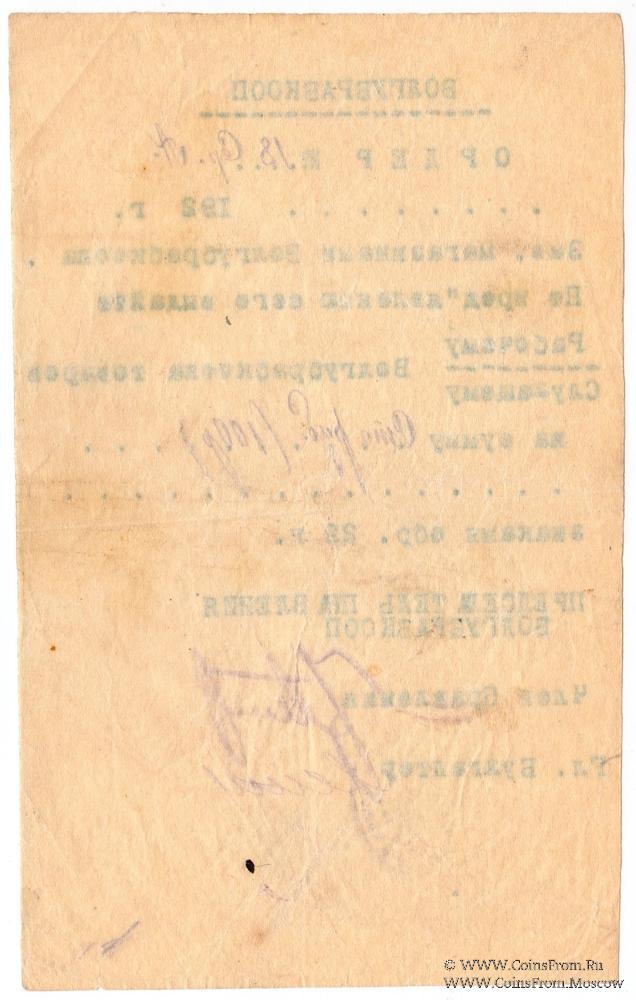 ВОЛГУБРАБКООП
ОРДЕР №. 18 Ср. А.
. . . . . . . . 192 г.
Зав. магазинами Волгубрабкоопа .
По пред"явлении сего выдайте
Рабочему
Служащему Волгубрабкоопа товаров
на сумму Сто руб. (100 р) . . . .
. . . . . . . . . . . . . . .
знаками обр. 23 г.
ПРЕДСЕДАТЕЛЬ ПРАВЛЕНИЯ
ВОЛГУБРАБКООП
Член Правления
Гл. Бухгалтер
© WWW.CoinsFrom.Ru
© WWW.CoinsFrom.Moscow